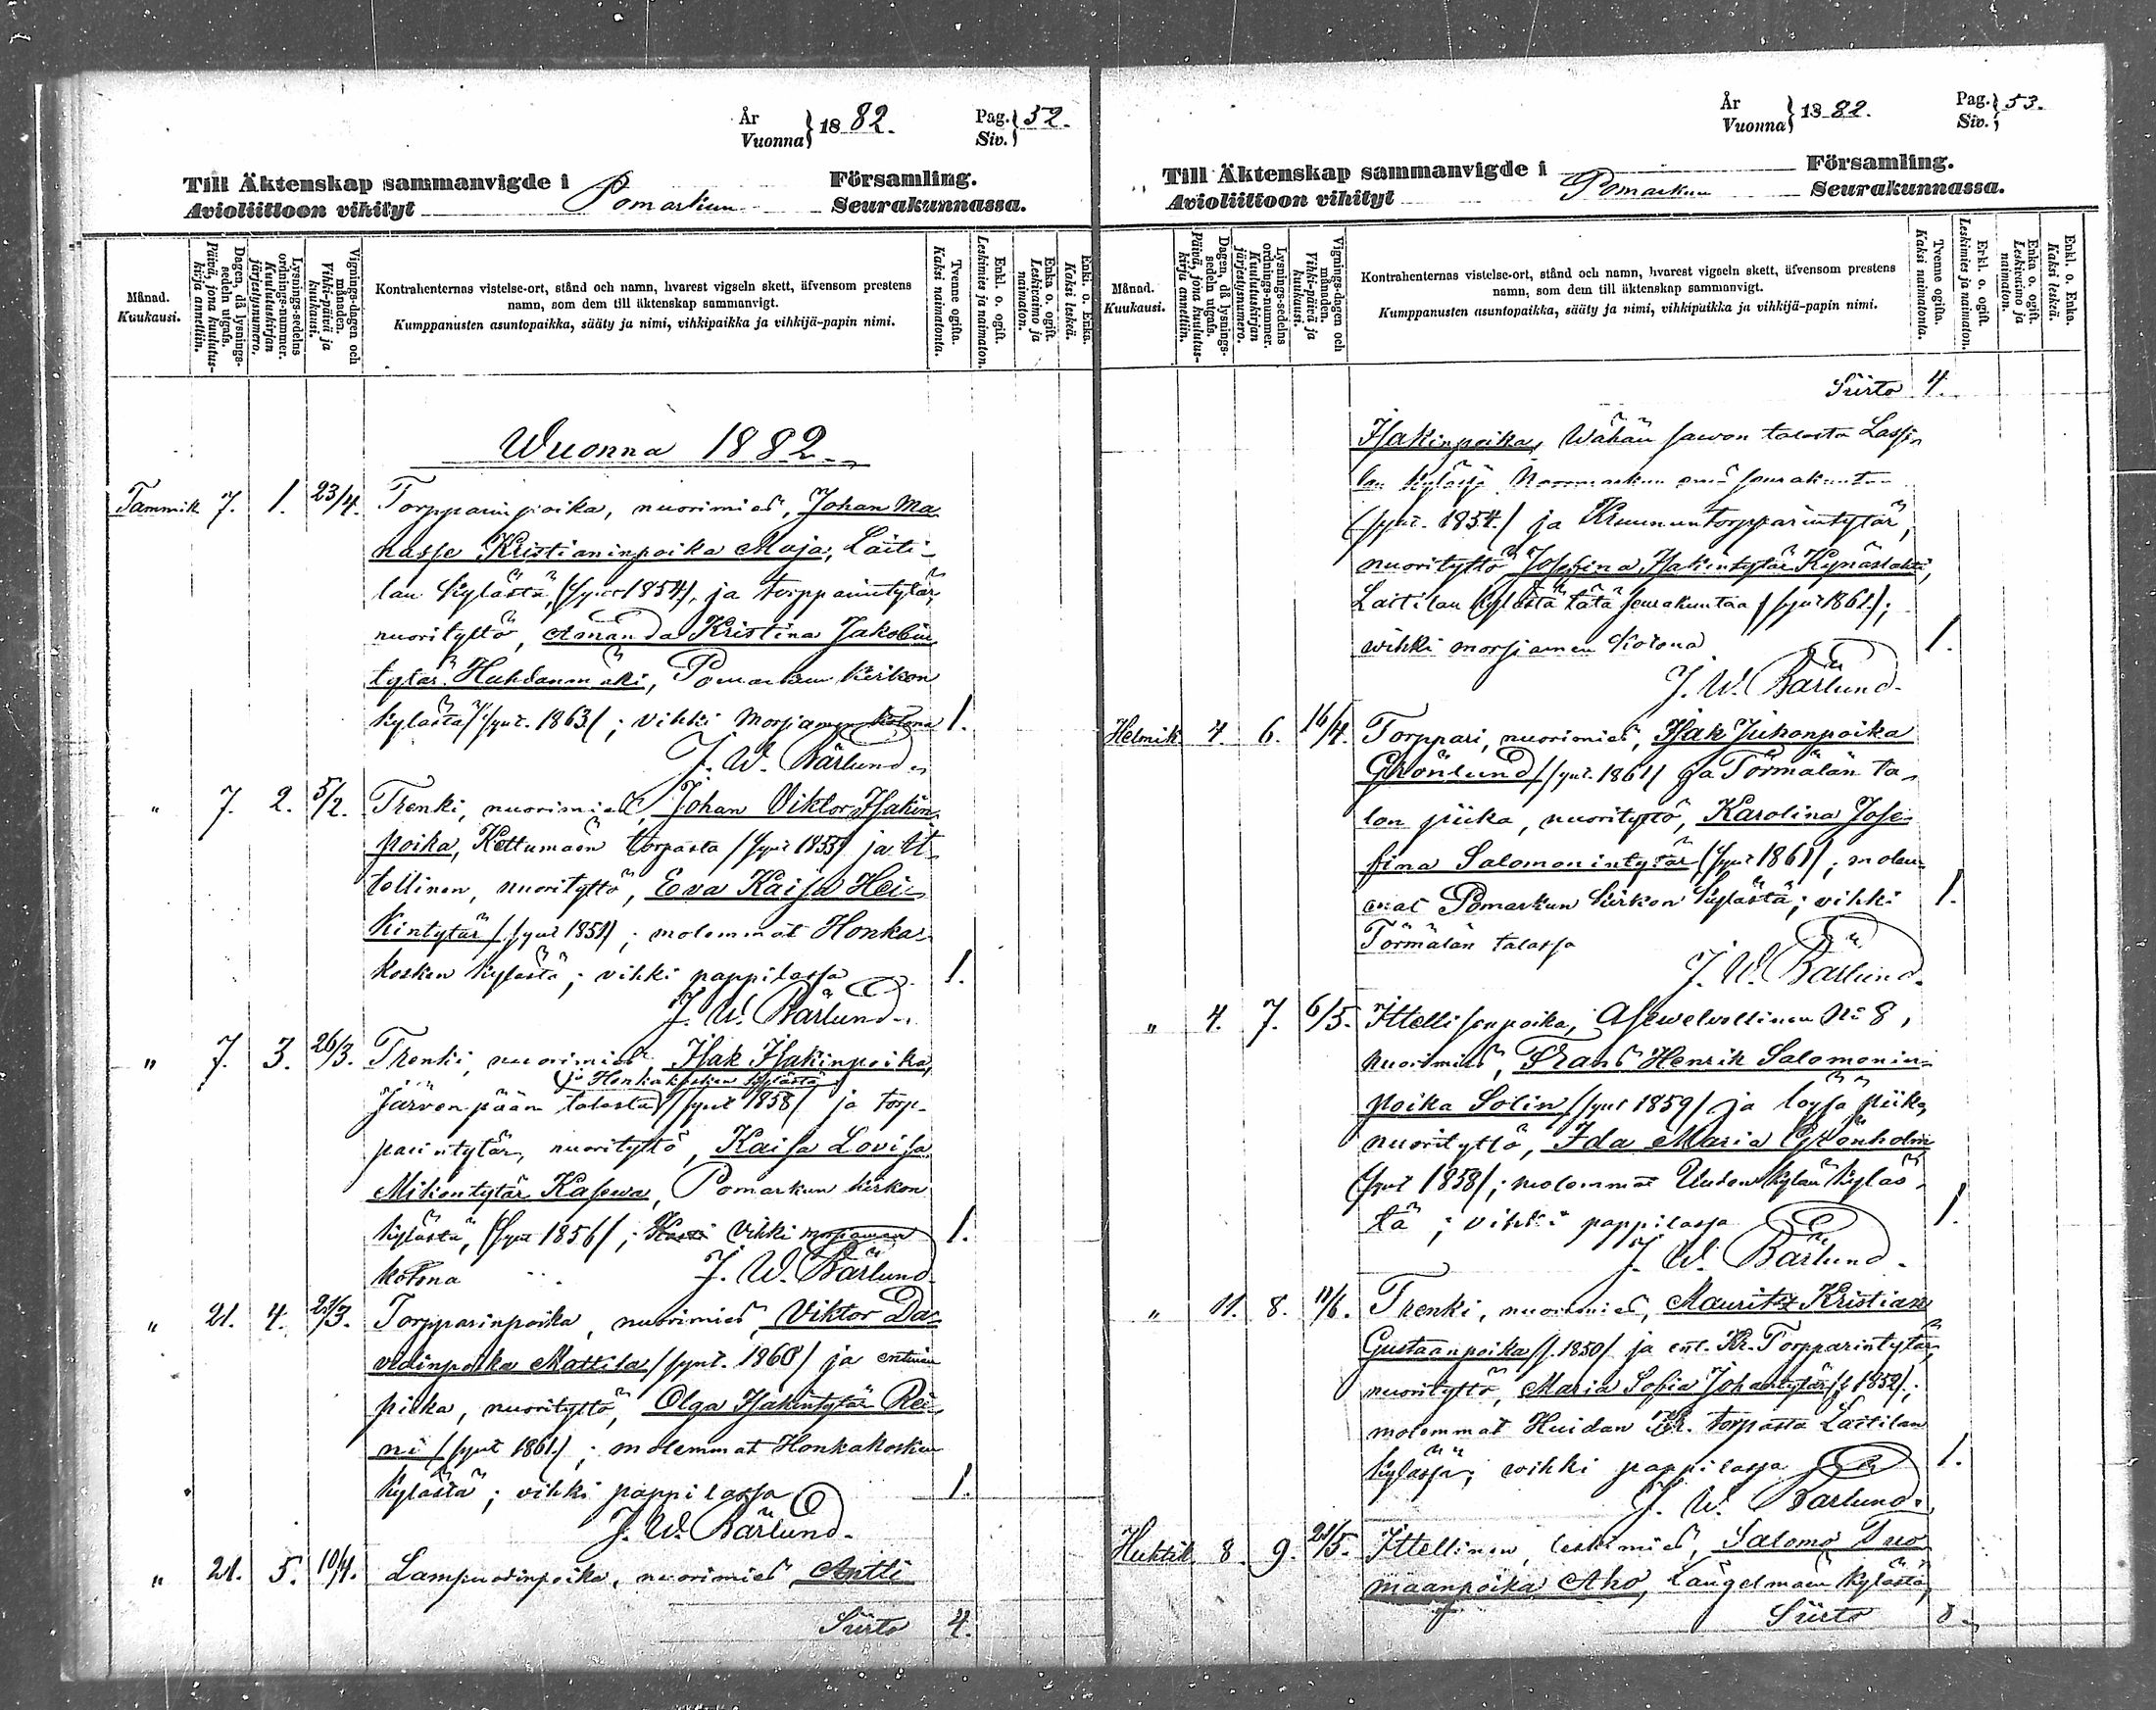 År
Vuonna } 1882.
Pag.
Siv. } 52.
Till Äktenskap sammanvigde i Församling.
Avioliittoon vihityt Pomarkun Seurakunnassa.
Månad.
Kuukausi.
Dagen, då lysnings-sedeln utgafs.
Päivä, jona kuulutus-kirja annettiin.
Lysnings-sedelns ordnings-nummer.
Kuulutuskirjan järjestysnumero.
Vignings-dagen och månaden.
Vihki-päivä ja kuukausi.
Kontrahenternas vistelse-ort, stånd och namn, hvarest vigseln skett, äfvensom prestens
namn, som dem till äktenskap sammanvigt.
Kumppanusten asuntopaikka, sääty ja nimi, vihkipaikka ja vihkijä-papin nimi.
Tvenne ogifta.
Kaksi naimatonta.
Enkl. o. ogift.
Leskimies ja naimaton.
Enka o. ogift.
Leskivaimo ja naimaton.
Enkl. o. Enka.
Kaksi leskeä.
Wuonna 1882.
Tammik 7. 1. 23/4. Torpparinpoika, nuorimies, Johan Ma-
nasse Kristianinpoika Maja, Laiti-
lan kylästä, (synt 1854), ja torpparintytär,
nuorityttö, Amanda Kristina Jakobin
tytär Huhdanmäki, Pomarkun kirkon
kylästä (synt. 1863); vihki morsiamen kotona 1.
J. W. Bärlund.
" 7. 2. 5/2. Trenki, nuorimies, Johan Viktor Isakin-
poika, Kettumäen torpasta (synt 1855) ja it-
tellinen, nuorityttö, Eva Kaisa Hei-
kintytär (synt 1851); molemmat Honka-
kosken kylästä; vihki pappilassa 1.
J. W. Bärlund.
" 7. 3. 26/3. Trenki, nuorimies Isak Isakinpoika,
ja Honkakosken kylästä
Järvenpään talosta (synt 1858) ja torp-
parintytär, nuorityttö, Kaisa Lovisa
Mikontytär Kasewa, Pomarkun kirkon
kylästä, (synt 1856); vihki morsiamen 1.
kotona J. W. Bärlund.
" 21. 4. 21/3. Torpparinpoika, nuorimies, Viktor Da-
vidinpoika Mattila (synt. 1860) ja entinen
piika, nuorityttö, Olga Isakintytär Rei-
ni (synt 1861); molemmat Honkakosken
kylästä; vihki pappilassa 1.
J. W. Bärlund.
" 21. 5. 10/4. Lampuodinpoika, nuorimies Antti
Siirto 4.
År
Vuonna } 1882.
Pag.
Siv. } 53.
Till Äktenskap sammanvigde i Församling.
Avioliittoon vihityt Pomarkun Seurakunnassa.
Månad.
Kuukausi.
Dagen, då lysnings-sedeln utgafs.
Päivä, jona kuulutus-kirja annettiin.
Lysnings-sedelns ordnings-nummer.
Kuulutuskirjan järjestysnumero.
Vignings-dagen och månaden.
Vihki-päivä ja kuukausi.
Kontrahenternas vistelse-ort, stånd och namn, hvarest vigseln skett, äfvensom prestens
namn, som dem till äktenskap sammanvigt.
Kumppanusten asuntopaikka, sääty ja nimi, vihkipaikka ja vihkijä-papin nimi.
Tvenne ogifta.
Kaksi naimatonta.
Erkl. o. ogift.
Leskimies ja naimaton.
Enka o. ogift.
Leskivaimo ja naimaton.
Enkl. o. Enka.
Kaksi leskeä.
Siirto 4.
Isakinpoika, Wähän sawon talosta Lassi-
lan kylässä Noormarkun emä seurakuntaa
(synt. 1854) ja Kruununtorpparintytär,
nuorityttö Josefina Isakintytär Kynäslahti,
Laitilan kylästä tätä seurakuntaa (synt 1861);
wihki morsiamen kotona 1.
J. W. Bärlund.
Helmik 4. 6. 16/4. Torppari, nuorimies, Isak Juhonpoika
Grönlund (synt. 1861) ja Törmälän ta-
lon piika, nuorityttö, Karolina Jose-
fina Salomonintytär (synt 1861); molem-
mat Pomarkun kirkon kylästä; vihki 1.
Törmälän talossa
J. W. Bärlund.
" 4. 7. 6/5. Ittellisenpoika, Asewelvollinen No 8,
nuorimies, Frans Henrik Salomonin-
poika Solin (synt 1859) ja loysä piika,
nuorityttö, Ida Maria Grönholm
(synt 1858); molemmat Uuden kylän kyläs-
tä; vihki pappilassa 1.
J. W. Bärlund.
" 11. 8. 11/6. Trenki, nuorimies, Mauritz Kristian
Gustaanpoika (s. 1850) ja ent. Kr. Torpparintytär,
nuorityttö, Maria Sofia Johantytär (s 1852);
molemmat Huidan Kr. torpasta Laitilan
kylässä; wihki pappilassa 1.
J. W. Bärlund.
Huhtik 8. 9. 21/5. Ittellinen, leskimies, Salomo Tuo-
maanpoika Aho, Längelmäen kylästä,
Siirto 8.